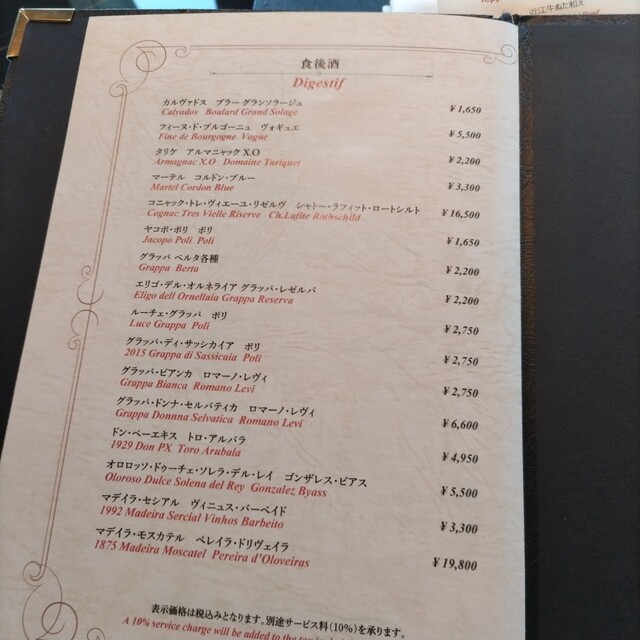 近江牛ぬた和え
食後酒
Digestif
カルヴァドス ブラー グランソラージュ
Calvados Boulard Grand Solage ￥1,650
フィーヌ・ド・ブルゴーニュ ヴォギュエ
Fine de Bourgogne Vogue ￥5,500
タリケ アルマニャック X.O
Armagnac X.O Domaine Tariquet ￥2,200
マーテル コルドン・ブルー
Martel Cordon Blue ￥3,300
コニャック・トレ・ヴィエーユ・リゼルヴ シャトー・ラフィット・ロートシルト
Cognac Tres Vielle Riserve Ch.Lafite Rothschild ￥16,500
ヤコポ・ポリ ポリ
Jacopo Poli Poli ￥1,650
グラッパ ベルタ各種
Grappa Berta ￥2,200
エリゴ・デル・オルネライア グラッパ・レゼルバ
Eligo dell Ornellaia Grappa Reserva ￥2,200
ルーチェ・グラッパ ポリ
Luce Grappa Poli ￥2,750
グラッパ・ディ・サッシカイア ポリ
2015 Grappa di Sassicaia Poli ￥2,750
グラッパ・ビアンカ ロマーノ・レヴィ
Grappa Bianca Romano Levi ￥2,750
グラッパ・ドンナ・セルバティカ ロマーノ・レヴィ
Grappa Donnna Selvatica Romano Levi ￥6,600
ドン・ペーエキス トロ・アルバラ
1929 Don PX Toro Arubala ￥4,950
オロロッソ・ドゥーチェ・ソレラ・デル・レイ ゴンザレス・ビアス
Oloroso Dulce Solena del Rey Gonzalez Byass ￥5,500
マデイラ・セシアル ヴィニュス・バーベイド
1992 Madeira Sercial Vinhos Barbeito ￥3,300
マデイラ・モスカテル ペレイラ・ドリヴェイラ
1875 Madeira Moscatel Pereira d'Oloveiras ￥19,800
表示価格は税込みとなります。別途サービス料(10%)を承ります。
A 10% service charge will be added to the